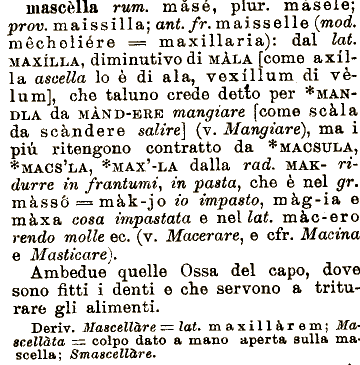 mascèlla rum. măsé, plur. măsele;
prov. maissilla; ant. fr. maisselle (mod.
mêcholiére = maxillaria): dal lat.
MAXÍLLA, diminutivo di MÀLA [come axíl-
la ascella lo è di ala, vexíllum di vè-
lum], che taluno crede detto per *MAN-
DLA da MÀND-ERE mangiare [come scàla
da scàndere salire] (v. Mangiare), ma i
piú ritengono contratto da *MACSULA,
*MACS'LA, *MAX'-LA dalla rad. MAK- ri-
durre in frantumi, in pasta, che è nel gr.
màssô = màk-jo io impasto, màg-ia e
màxa cosa impastata e nel lat. màc-ero
rendo molle ec. (v. Macerare, e cfr. Macina
e Masticare).
Ambedue quelle Ossa del capo, dove
sono fitti i denti e che servono a tritu-
rare gli alimenti.
Deriv. Mascellàre = lat. maxillàrem; Ma-
scellàta = colpo dato a mano aperta sulla ma-
scella; Smascellàre.